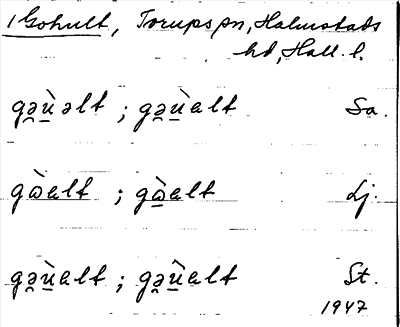 1 Gohult, Torups sn, Halmstads
hd, Hall. l.
gə̯ù̱əlt ; gə̯ù̱alt Sa.
gὼalt ; gὼ̱alt Lj.
gə̯ù̱alt ; gə̯ù̱alt St.
1947